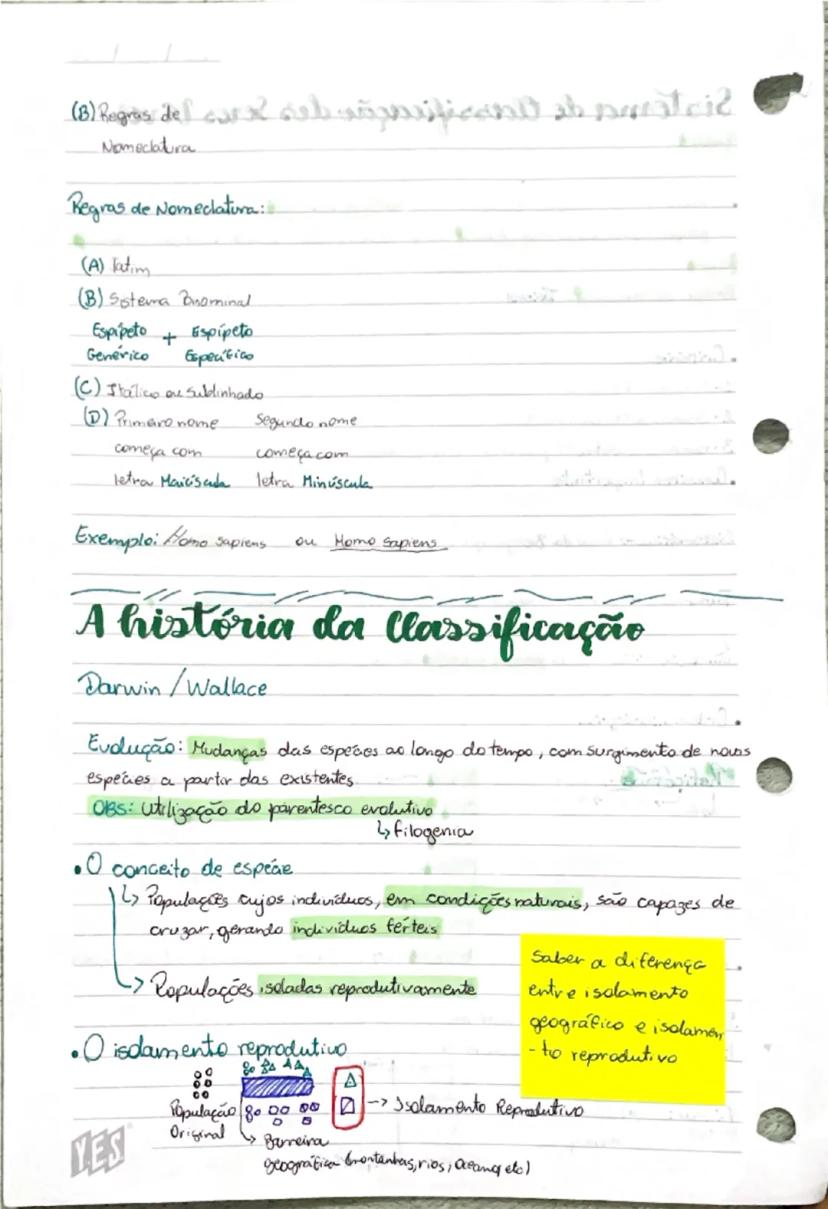 (B) Regras de
Nomeclatura
Regras de Nomeclatura:
(A) latim
(B) Sistema Binominal
Espípeto + Espípeto
Genérico Específico
(C) Itálico ou Sublinhado
(D) Primeiro nome Segundo nome
começa com começa com
letra Maiúscula letra Minúscula
Exemplo: Homo sapiens ou Homo sapiens
A história da Classificação
Darwin / Wallace
Evolução: Mudanças das espécies ao longo do tempo, com surgimento de novas
espécies a partir das existentes
OBS: Utilização do parentesco evolutivo
↳ filogenia
• O conceito de espécie
↳ Populações cujos indivíduos, em condições naturais, são capazes de
cruzar, gerando indivíduos férteis
↳ Populações isoladas reprodutivamente
Saber a diferença
entre isolamento
geográfico e isolamen
-to reprodutivo
• O isolamento reprodutivo
População
Original
→ Isolamento Reprodutivo
↳ Barreira
geográfica (montanhas, rios, oceano, etc)
YES